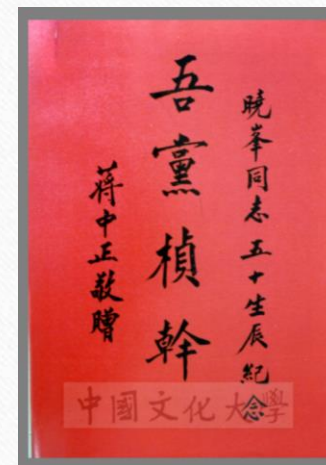 曉峯同志五十生辰紀念
吾黨楨幹
蔣中正敬贈
中國文化大學